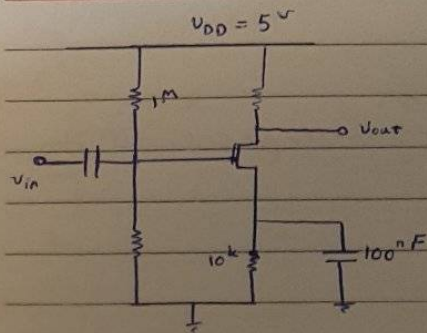 V_DD = 5 V
1M
Vout
Vin
10k
100 nF